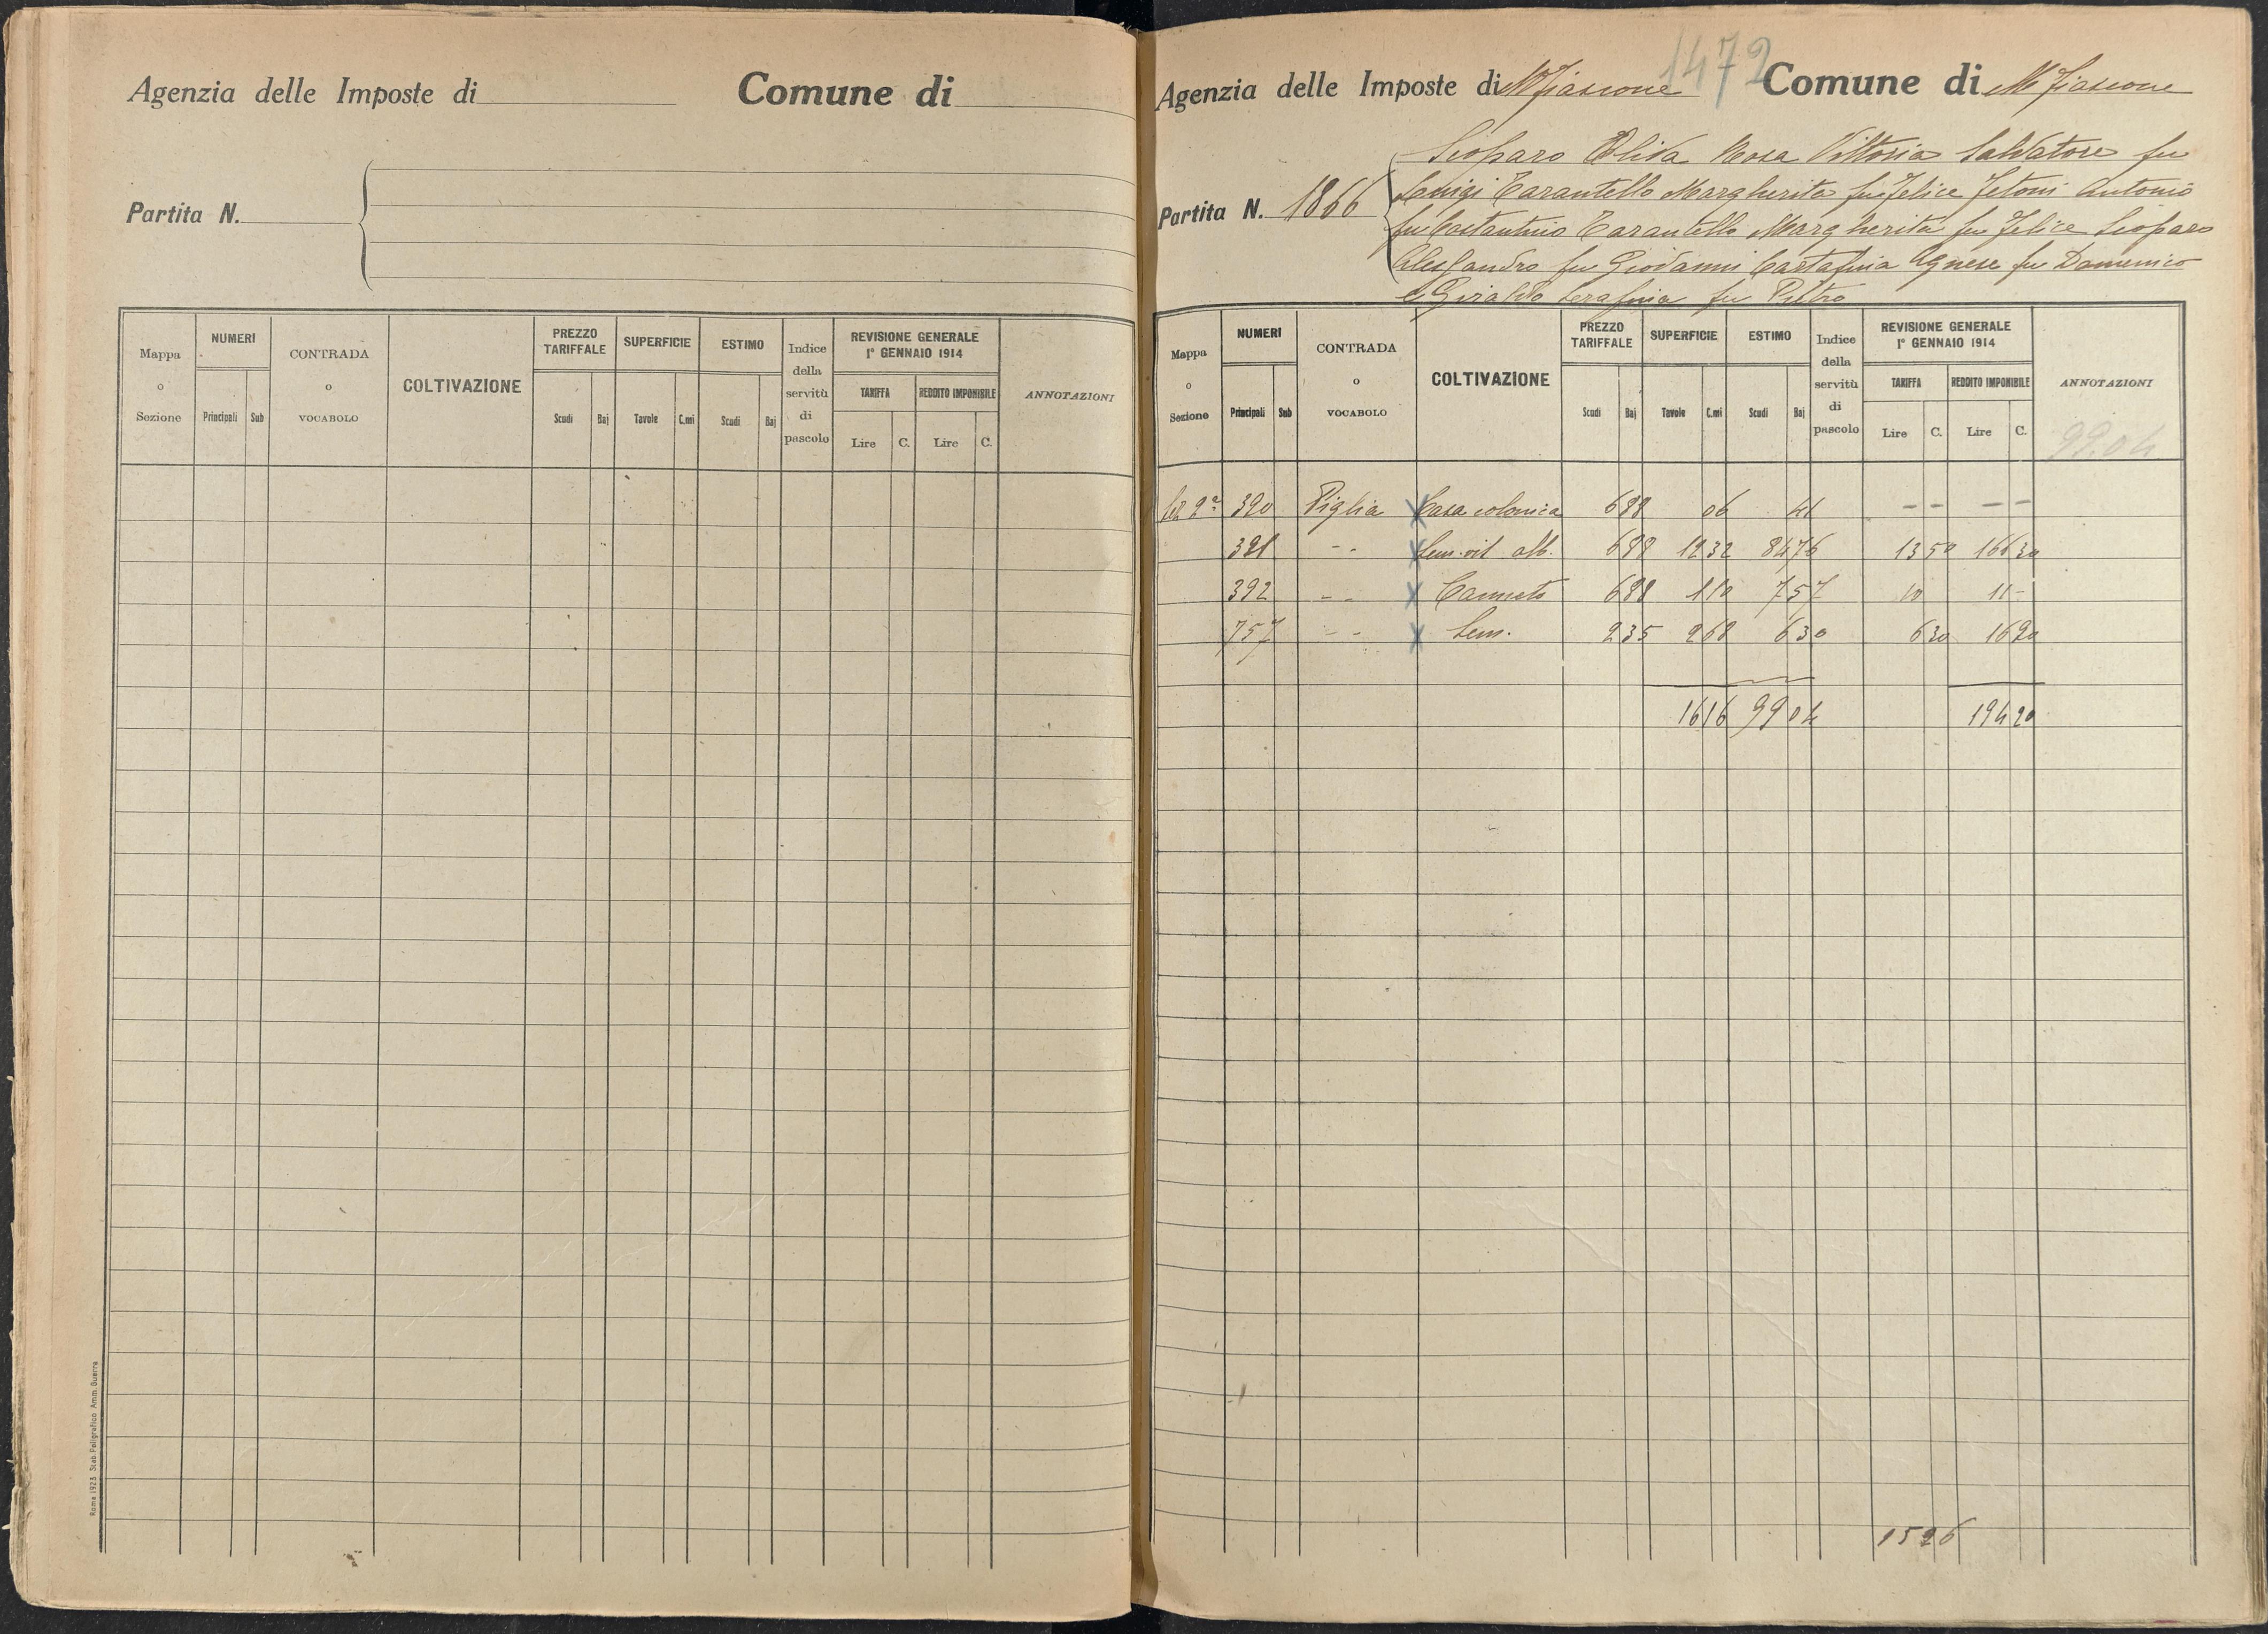 Agenzia delle Imposte di Comune di
Partita N.
Mappa o Sezione
NUMERI
Principali Sub
CONTRADA o VOCABOLO
COLTIVAZIONE
PREZZO TARIFFALE
Scudi Baj
SUPERFICIE
Tavole C.mi
ESTIMO
Scudi Baj
Indice della servitù di pascolo
REVISIONE GENERALE
1° GENNAIO 1914
TARIFFA REDDITO IMPONIBILE
Lire C. Lire C.
ANNOTAZIONI
Roma 1923 Stab. Poligrafico Amm. Guerra
1472
Agenzia delle Imposte di M Fiascone Comune di M Fiascone
Scoparo Elida Rosa Vittoria Salvatore fu
Partita N. 1866 Luigi Tarantello Margherita fu Felice Fetoni Antonio
fu Costantino Tarantello Margherita fu Felice Scoparo
Alessandro fu Giovanni Agnese fu Domenico
e Serafina fu Pietro
Mappa o Sezione
NUMERI
Principali Sub
CONTRADA o VOCABOLO
COLTIVAZIONE
PREZZO TARIFFALE
Scudi Baj
SUPERFICIE
Tavole C.mi
ESTIMO
Scudi Baj
Indice della servitù di pascolo
REVISIONE GENERALE
1° GENNAIO 1914
TARIFFA REDDITO IMPONIBILE
Lire C. Lire C.
ANNOTAZIONI
99.04
2ª 390 Piglia X Casa colonica 688 06 41 -- --
391 -- X Sem. vit. alb. 688 1232 8476 13 50 166 30
392 -- X Canneto 688 110 757 10 11 -
757 -- X Sem. 235 268 630 6 20 16 20
1616 9904 194 20
1526